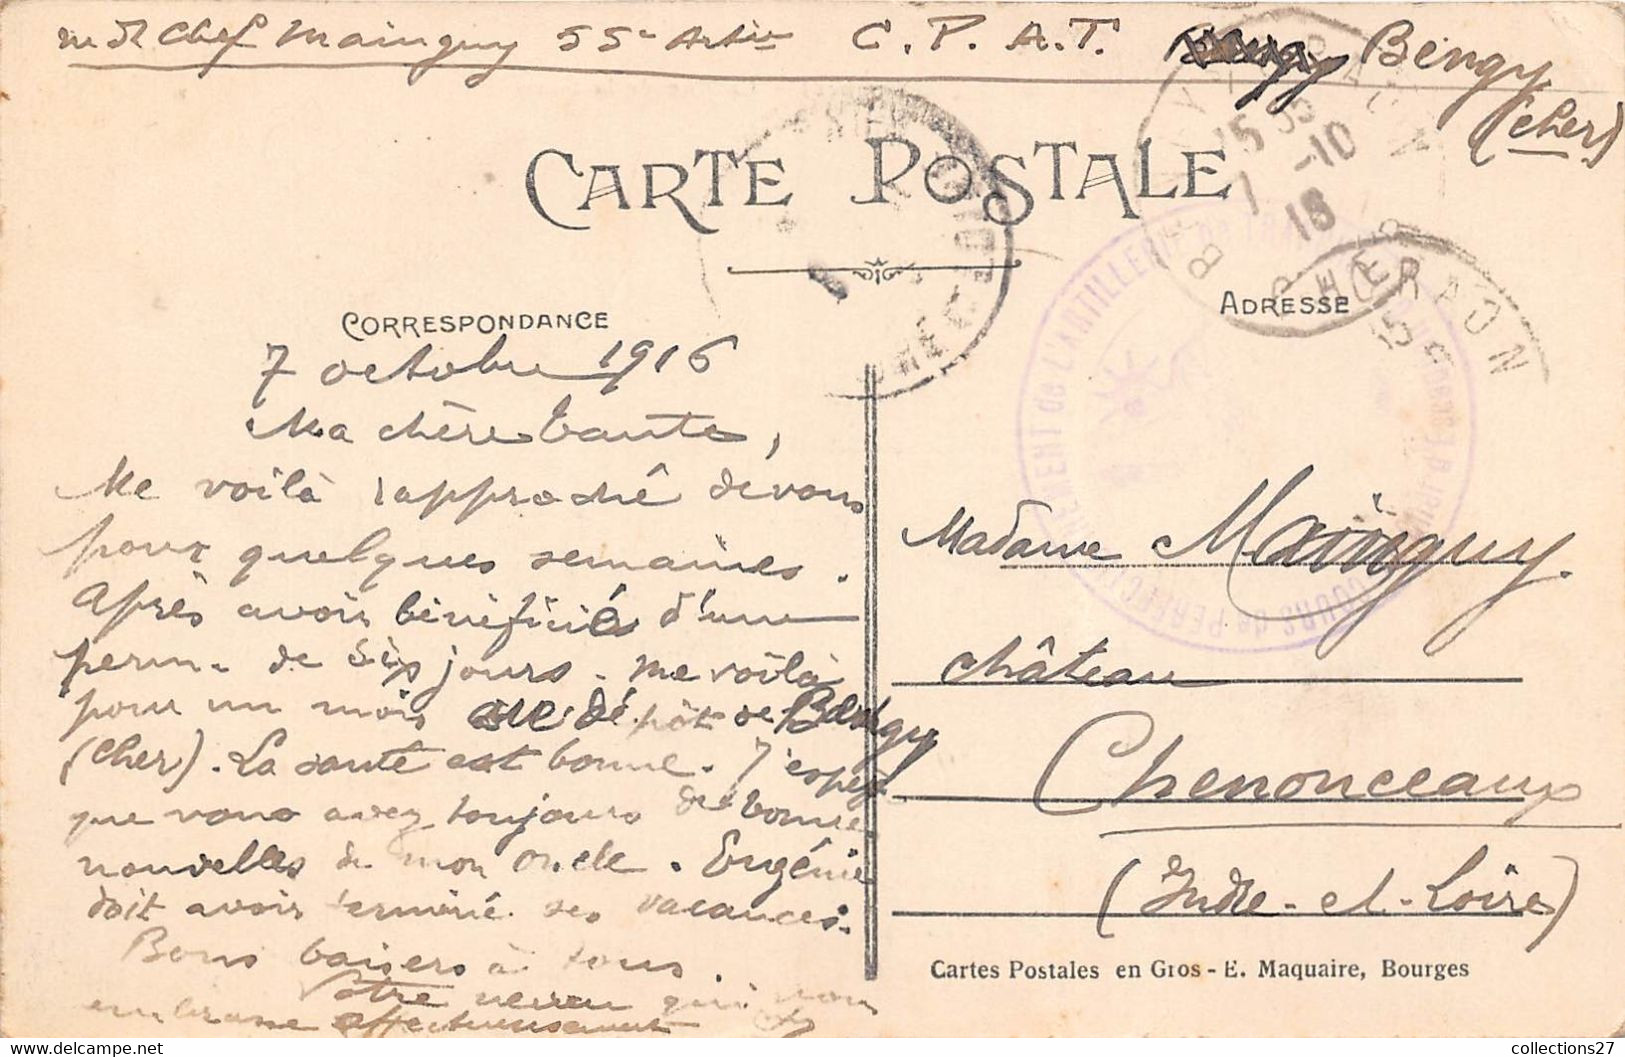 mdl chef Mainguy 55e Artie C. P. A. T. Bengy
(Cher)
CARTE POSTALE
CORRESPONDANCE
ADRESSE
7 octobre 1916
Ma chère tante,
Me voilà rapproché de vous
pour quelques semaines.
Après avoir bénéficié d'une
perm. de six jours. me voilà
pour un mois au dépôt de Bengy
(Cher). La santé est bonne. J'espère
que vous avez toujours de bonnes
nouvelles de mon oncle. Eugénie
doit avoir terminé ses vacances.
Bons baisers à tous.
Votre neveu qui vous
embrasse affectueusement
Madame Mainguy
château
Chenonceaux
(Indre-et-Loire)
Cartes Postales en Gros - E. Maquaire, Bourges
15 35
7 -10
16
CHER
COURS de PERFECTIONNEMENT de L'ARTILLERIE de
collections27